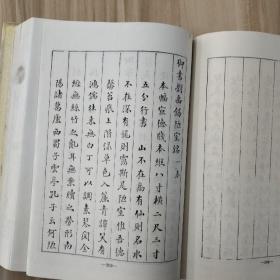 御書劉禹錫陋室銘一卷
本幅宣德牋本縱八寸橫二尺三寸
五分行書 山不在高有仙則名水
不在深有龍則靈斯是陋室惟吾德
馨苔痕上階綠草色入簾青談笑有
鴻儒往來無白丁可以調素琴閱金
經無絲竹之亂耳無案牘之勞形南
陽諸葛廬西蜀子雲亭孔子云何陋